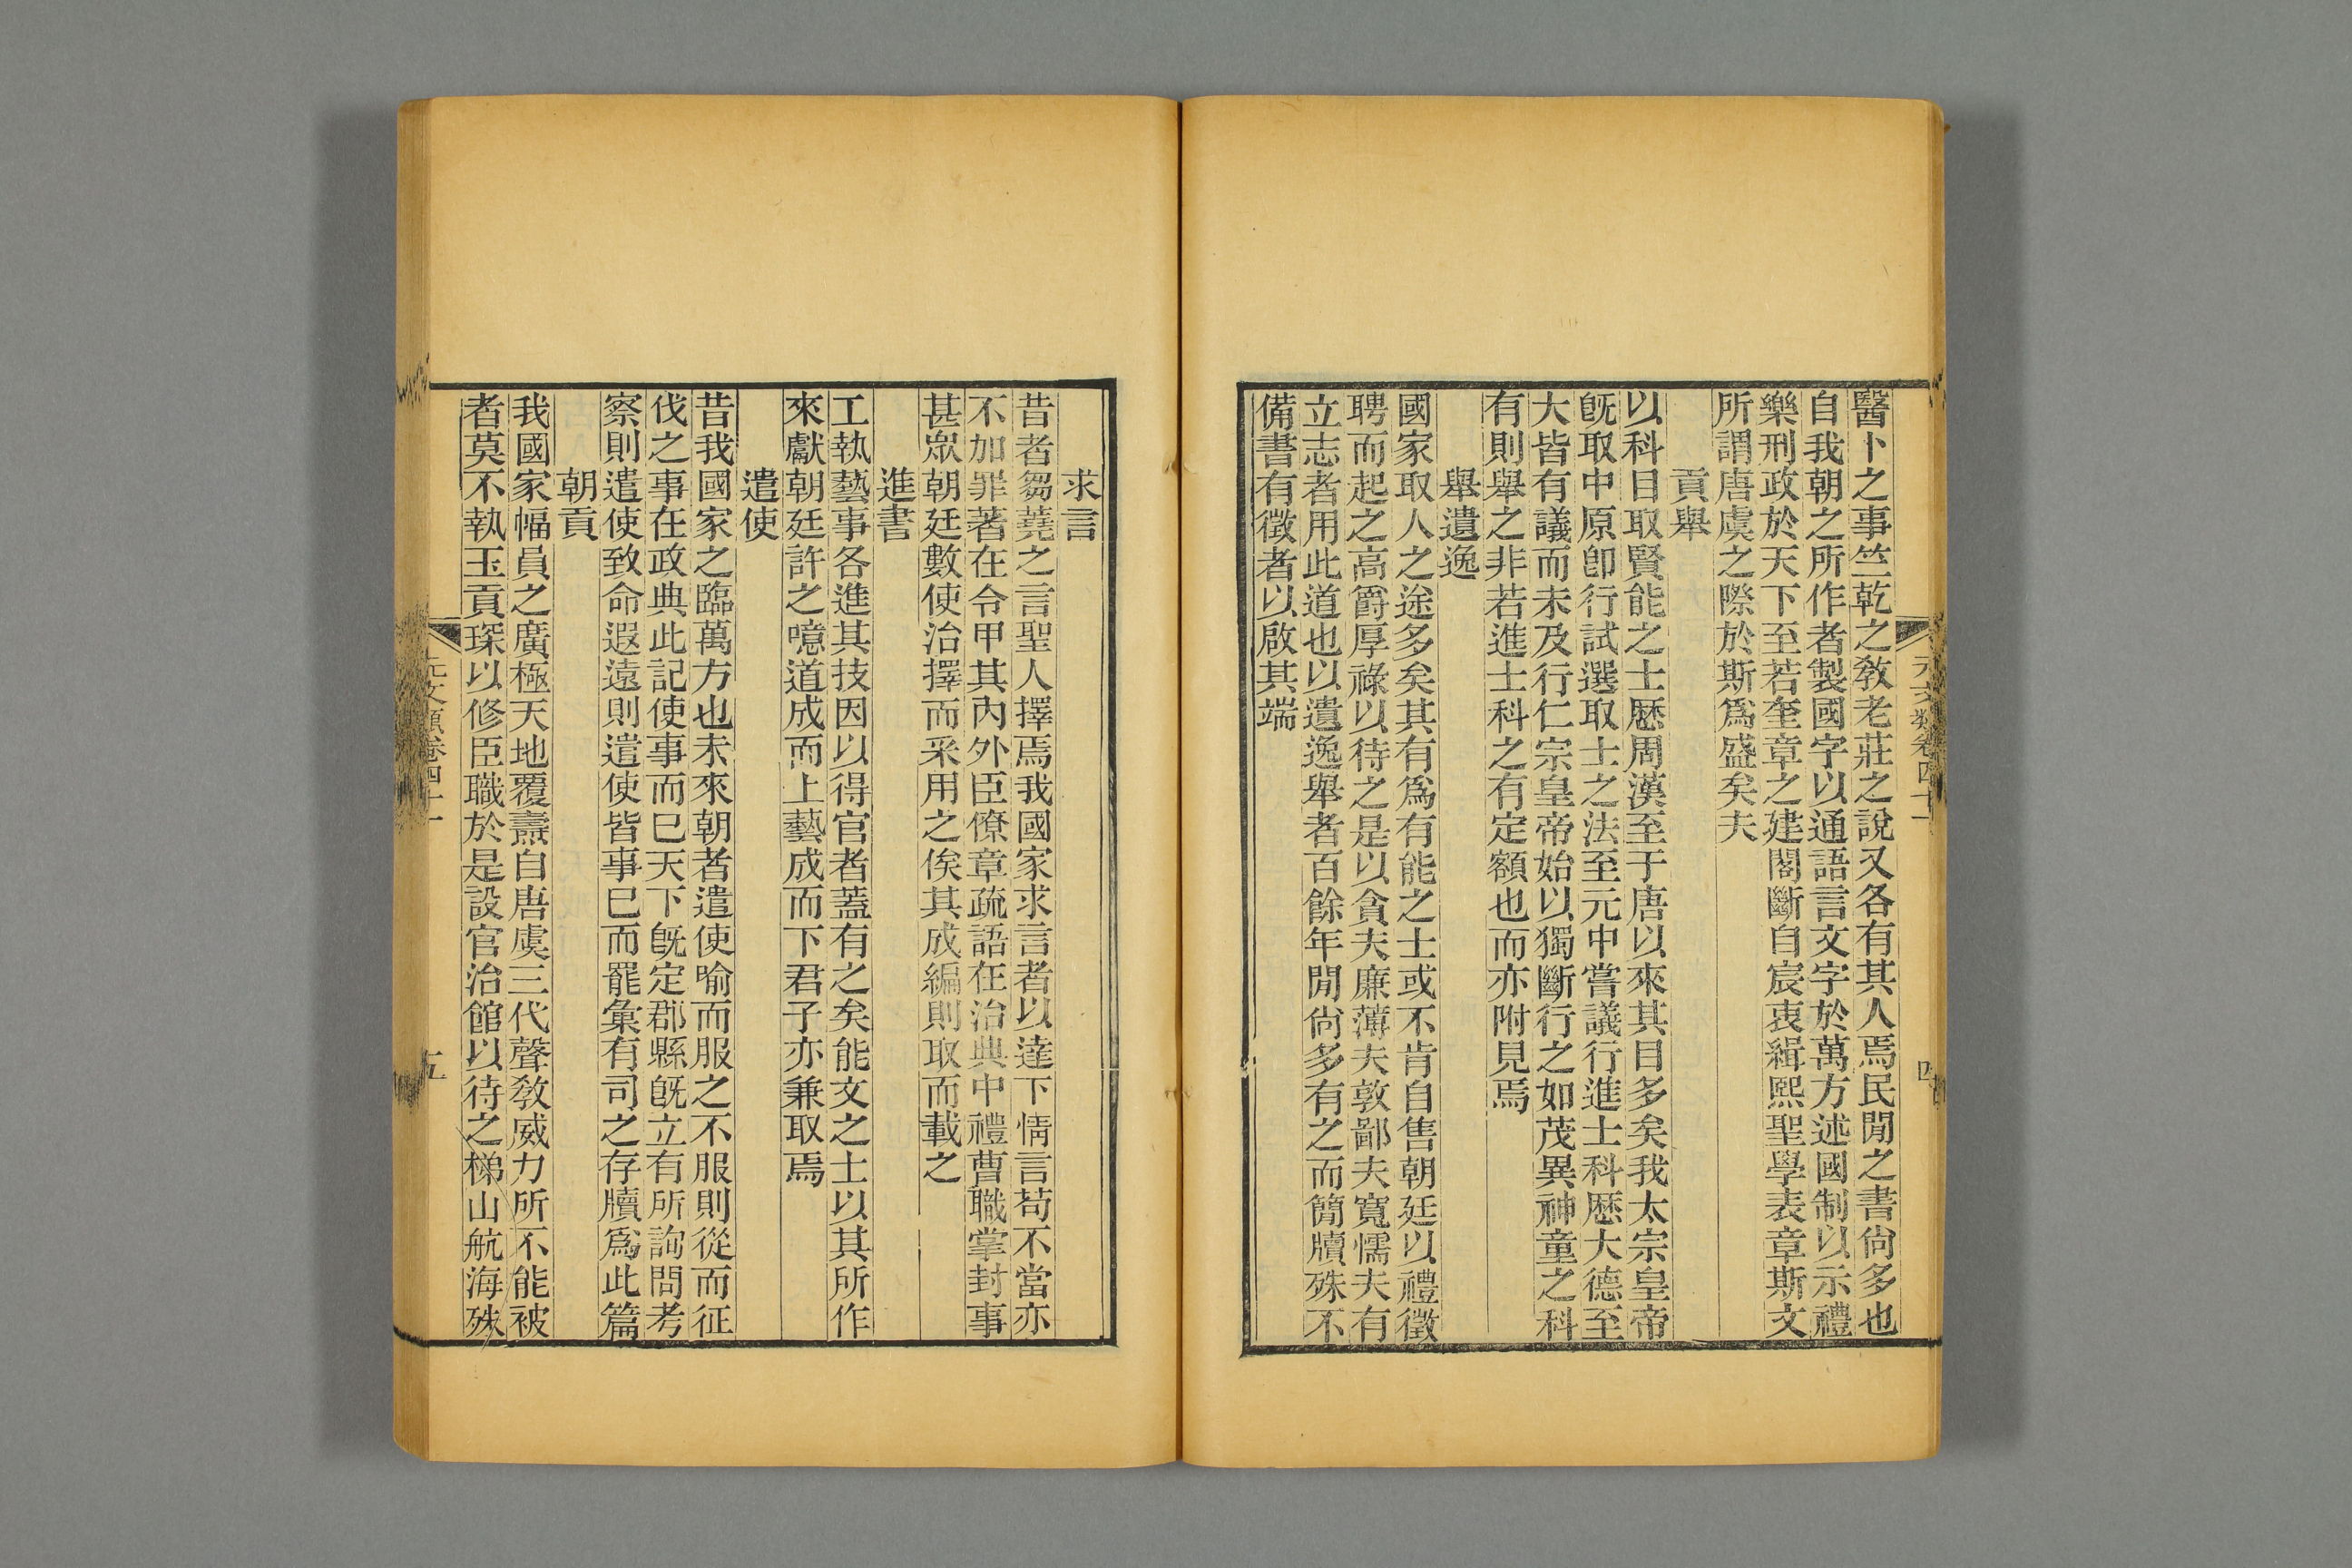 醫卜之事竺乾之敎老莊之說又各有其人焉民閒之書尙多也
自我朝之所作者製國字以通語言文字於萬方述國制以示禮
樂刑政於天下至若奎章之建閣斷自宸衷緝熙聖學表章斯文
所謂唐虞之際於斯爲盛矣夫
貢舉
以科目取賢能之士歷周漢至于唐以來其目多矣我太宗皇帝
旣取中原卽行試選取士之法至元中嘗議行進士科歷大德至
大皆有議而未及行仁宗皇帝始以獨斷行之如茂異神童之科
有則舉之非若進士科之有定額也而亦附見焉
舉遺逸
國家取人之途多矣其有爲有能之士或不肯自售朝廷以禮徵
聘而起之高爵厚祿以待之是以貪夫廉薄夫敦鄙夫寬懦夫有
立志者用此道也以遺逸舉者百餘年閒尙多有之而簡牘殊不
備書有徵者以啟其端
元文類卷四十一
四
求言
昔者芻蕘之言聖人擇焉我國家求言者以達下情言苟不當亦
不加罪著在令甲其內外臣僚章疏語在治典中禮曹職掌封事
甚眾朝廷數使治擇而采用之俟其成編則取而載之
進書
工執藝事各進其技因以得官者蓋有之矣能文之士以其所作
來獻朝廷許之噫道成而上藝成而下君子亦兼取焉
遣使
昔我國家之臨萬方也未來朝者遣使喻而服之不服則從而征
伐之事在政典此記使事而巳天下旣定郡縣旣立有所詢問考
察則遣使致命遐遠則遣使皆事巳而罷彙有司之存牘爲此篇
朝貢
我國家幅員之廣極天地覆燾自唐虞三代聲敎威力所不能被
者莫不執玉貢琛以修臣職於是設官治館以待之梯山航海殊
元文類卷四十一
五